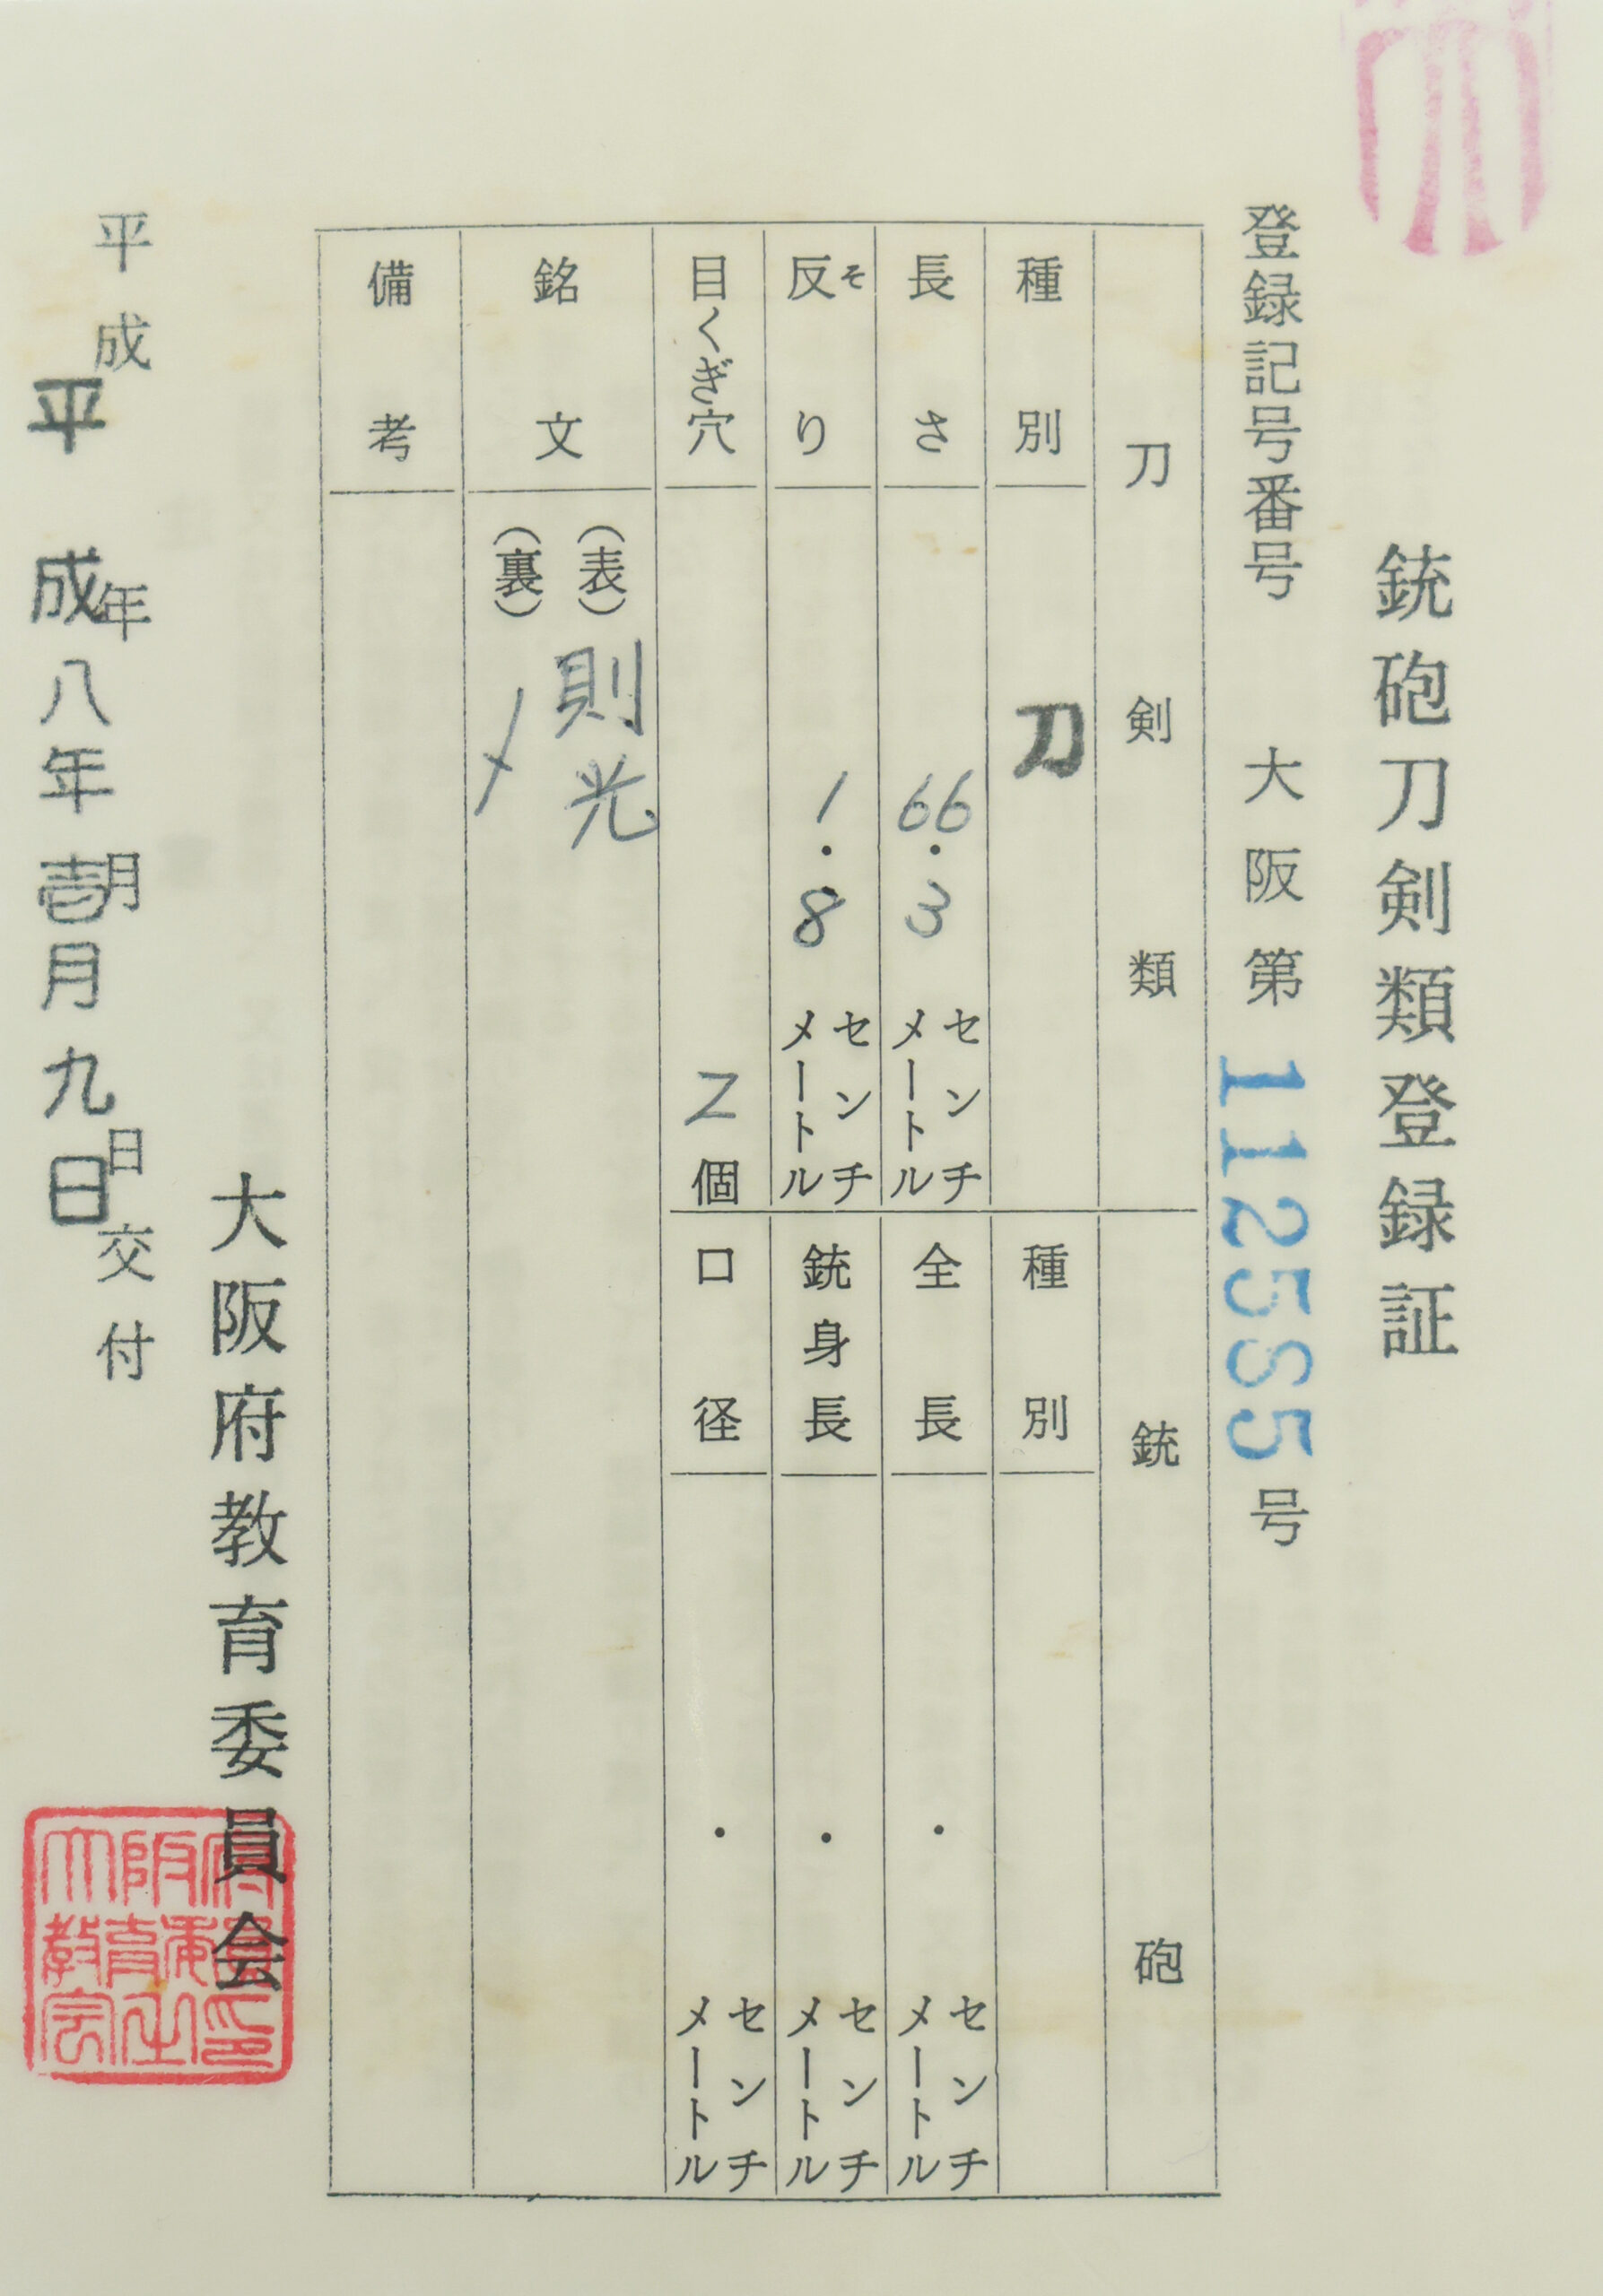 銃砲刀剣類登録証
登録記号番号 大阪第112585号
刀剣類 銃砲
種別 刀 種別
長さ 66.3 センチメートル 全長 ・ センチメートル
反り そ 1.8 センチメートル 銃身長 ・ センチメートル
目くぎ穴 2個 口径 ・ センチメートル
銘文 (表) 則光
(裏)
備考
大阪府教育委員会
平成 年 月 日交付
平成八年壱月九日